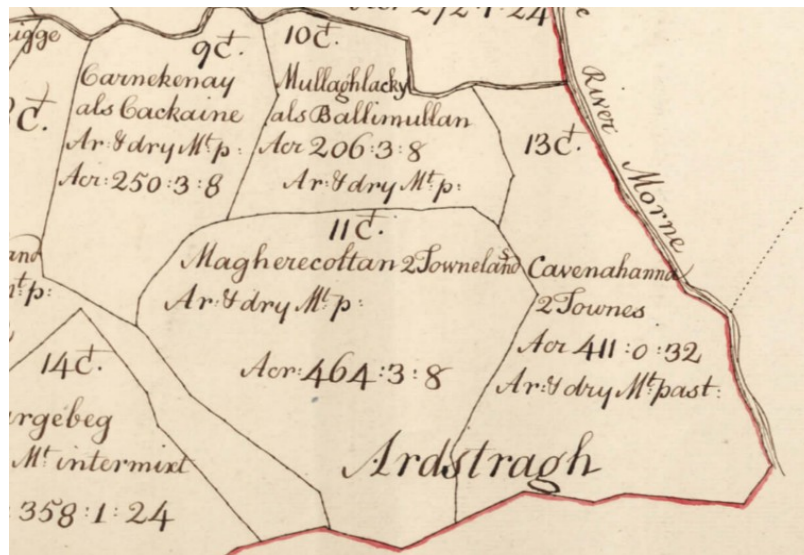 Acr 272:1:24
igge
9Ct.
Carnekenay
als Cackaine
Ar:& dry Mt:p:
Acr:250:3:8
10Ct.
Mullaghlacky
als Ballimullan
Acr 206:3:8
Ar:& dry Mt:p:
13Ct.
River Morne
Ct.
11Ct.
Magherecottan 2 Towneland
Ar:& dry Mt:p:
Acr:464:3:8
Cavenahanna
2 Townes
Acr 411:0:32
Ar:& dry Mt:past:
and
Mt:p:
14Ct.
rgebeg
Mt intermixt
:358:1:24
Ardstragh